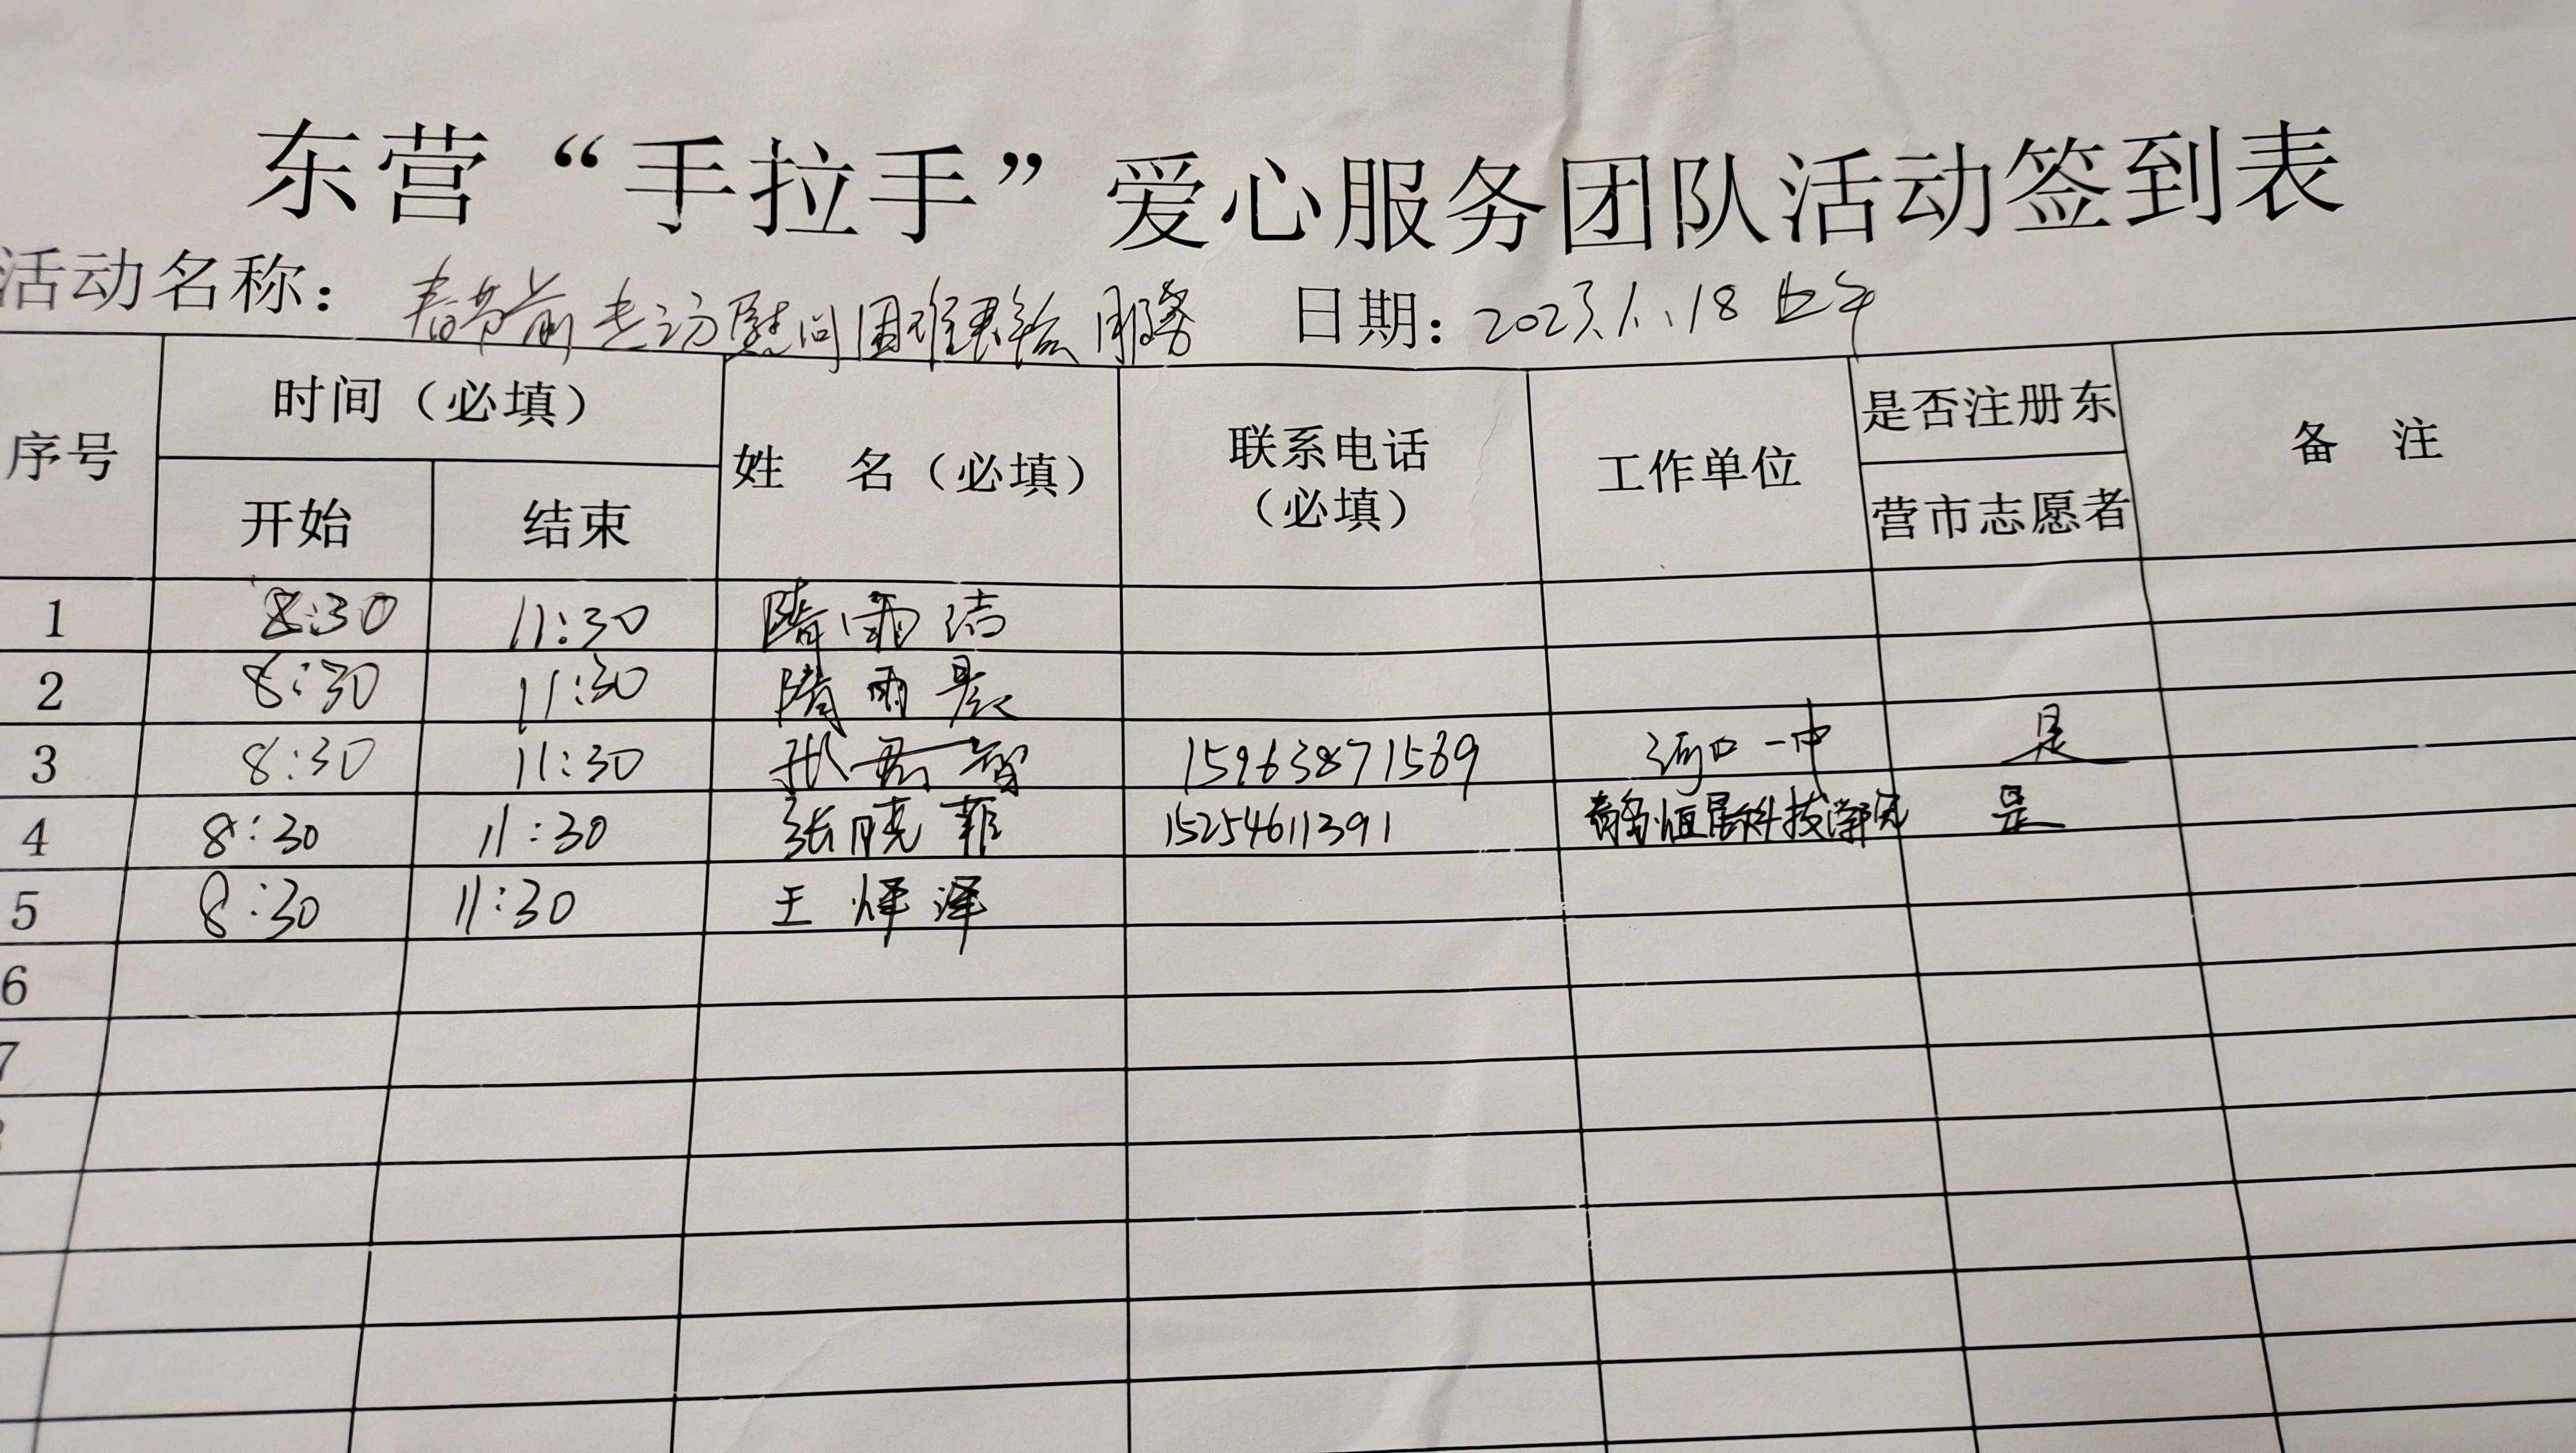 东营“手拉手”爱心服务团队活动签到表
活动名称：春节前走访慰问困难 服务 日期：2023.1.18 上午
序号 时间（必填） 姓 名（必填） 联系电话（必填） 工作单位 是否注册东营市志愿者 备 注
开始 结束
1 8:30 11:30 隋雨洁
2 8:30 11:30 隋雨晨
3 8:30 11:30 张君智 15963871569 河口一中 是
4 8:30 11:30 张晓菲 15254611391 青岛恒星科技学院 是
5 8:30 11:30 王烨泽
6
7